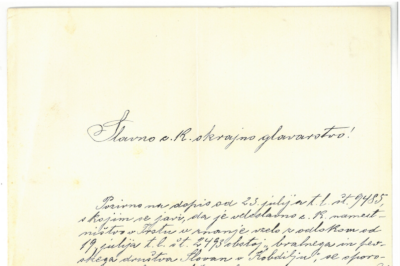 Slavno c. K. okrajno glavarstvo!
Pozivno na dopis od 23. julija t. l. št. 9485,
s kojim se javi, da je vdeležno c. k. namest-
ništvo v Trstu v znanje vzelo z odlokom od
19. julija t. l. št. 2495 obstoj, bralnega in pev-
skega društva „Slovan v Kobdilju", se oporo-